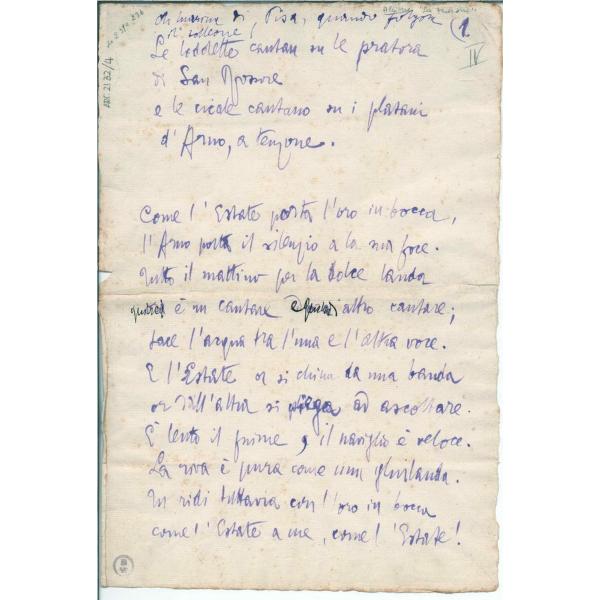 Oh marina di Pisa, quando folgora
il solleone!
1.
IV
ARC. 21 32/4
Le lodolette cantan su le pratora
di San Rossore
e le cicale cantano su i platani
d'Arno, a tenzone.
Come l'Estate porta l'oro in bocca,
l'Arno porta il silenzio a la sua foce.
Tutto il mattino per la dolce landa
quinci è un cantare e quindi altro cantare;
tace l'acqua tra l'una e l'altra voce.
E l'Estate or si china da una banda
or dall'altra si piega ad ascoltare.
È lento il fiume, il naviglio è veloce.
La riva è pura come una ghirlanda.
Tu ridi tuttavia con l'oro in bocca
come l'Estate a me, come l'Estate!